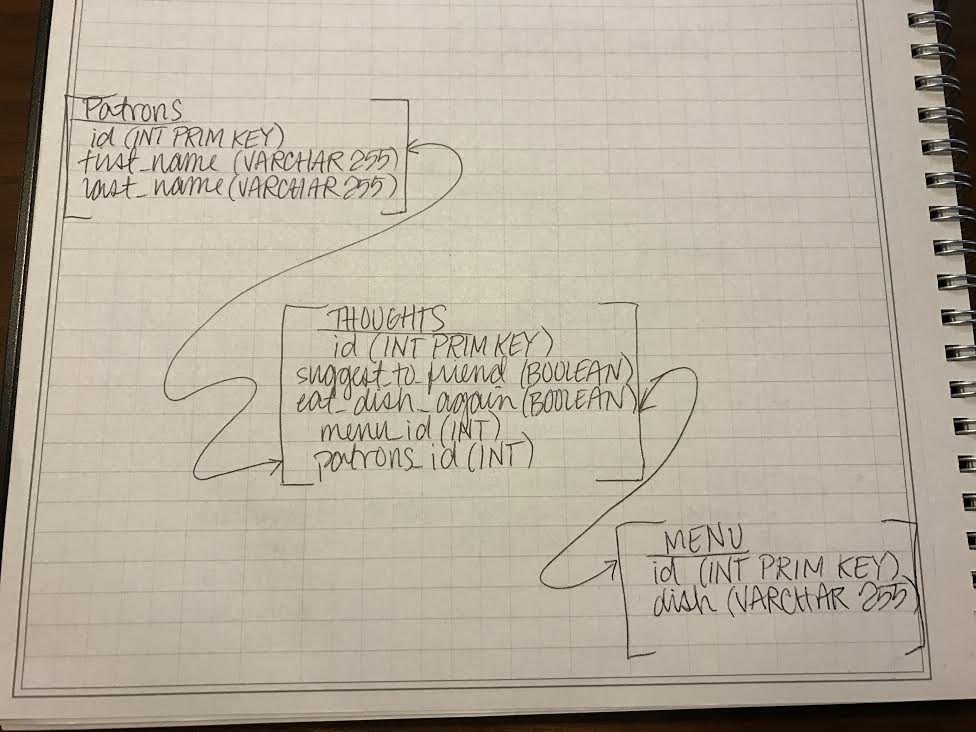 Patrons
id (INT PRIM KEY)
first_name (VARCHAR 255)
last_name (VARCHAR 255)
THOUGHTS
id (INT PRIM KEY)
suggest_to_friend (BOOLEAN)
eat_dish_again (BOOLEAN)
menu_id (INT)
patrons_id (INT)
MENU
id (INT PRIM KEY)
dish (VARCHAR 255)